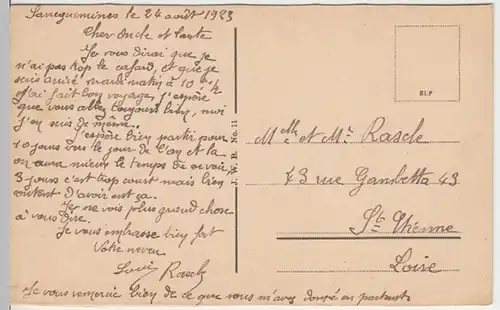 Sarreguemines le 24 août 1923
Cher Oncle et tante
Je vous dirai que je
n'ai pas trop le cafard, et que je
suis arrivé mardi matin à 10 h ½
j'ai fait bon voyage, j'espère
que vous allez toujours bien, moi
j'en suis de même.
J'espère bien partir pour
10 jours vers le jour de l'an et la
on aura mieux le temps de se voir
3 jours c'est trop court mais bien
content d'avoir eut ça.
Je ne vois plus grand chose
à vous dire.
Je vous embrasse bien fort
Votre neveu
Louis Rascle
Je vous remercie bien de ce que vous m'avez donné en partant
J. W. B. No. 11
ELP
Mme et Mr Rascle
43 rue Gambetta 43
St Etienne
Loire